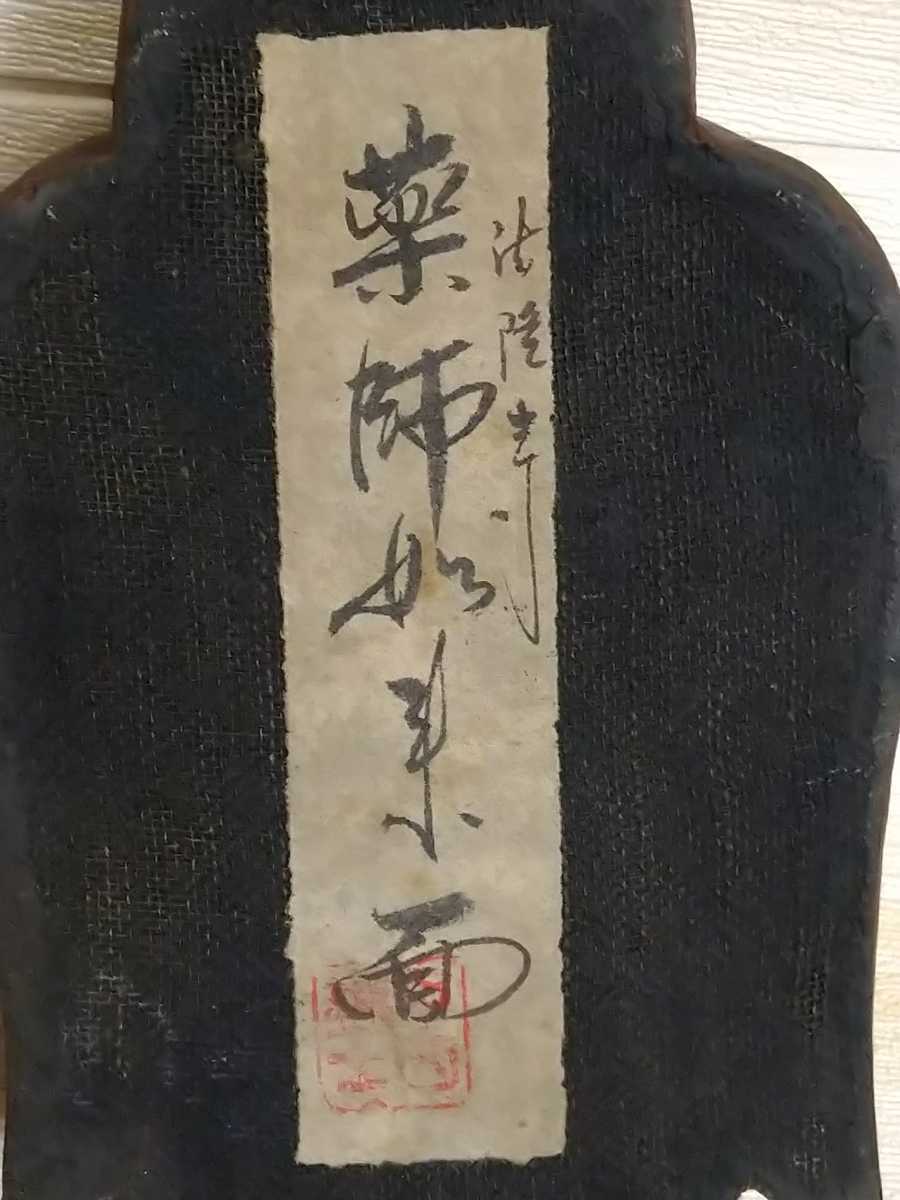 法隆寺
薬師如来面